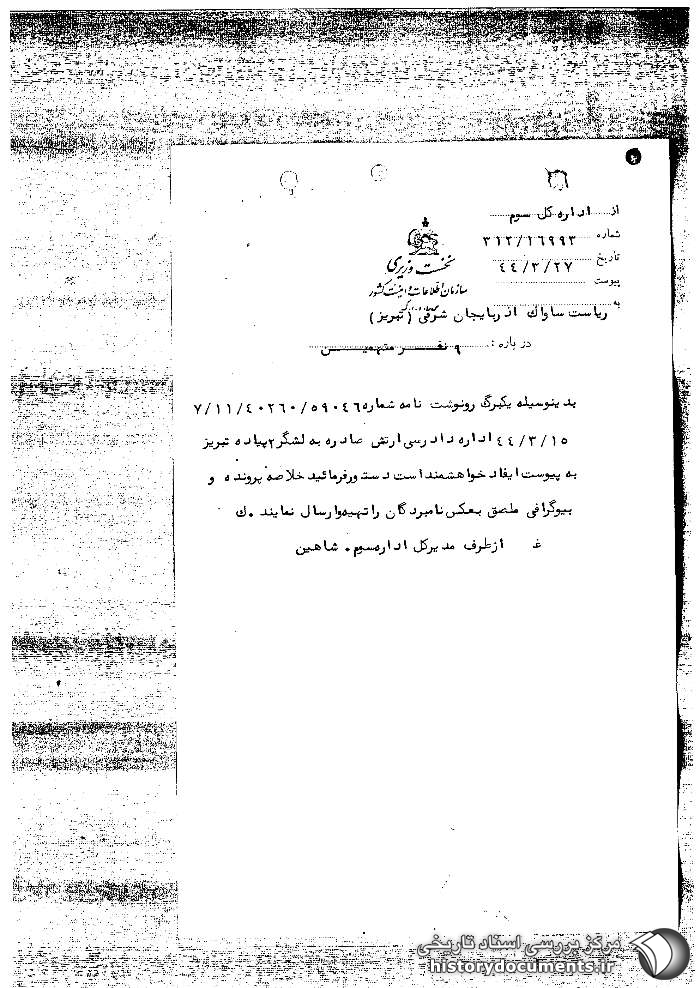 از اداره کل سوم
شماره ۳۱۲/۱۶۹۹۳
تاریخ ۴۴/۳/۲۷
پیوست
نخست وزیری
سازمان اطلاعات و امنیت کشور
به ریاست ساواک آذربایجان شرقی (تبریز)
در باره : ۹ نفر متهمین
بدینوسیله یکبرگ رونوشت نامه شماره ۷/۱۱/۴۰۲۶۰/۵۹۰۴۶
۴۴/۳/۱۵ اداره دادرسی ارتش صادره به لشگر ۲ پیاده تبریز
به پیوست ایفاد خواهشمند است دستور فرمائید خلاصه پرونده و
بیوگرافی ملصق بعکس نامبردگان را تهیه و ارسال نمایند . ک
غ از طرف مدیر کل اداره سوم . شاهین
مرکز بررسی اسناد تاریخی
historydocuments.ir